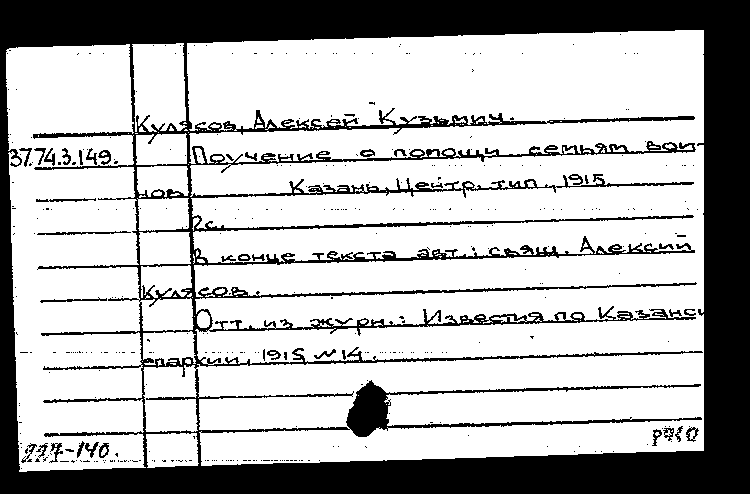 Кулясов, Алексей Кузьмич.
37.74.3.149. Поучение о помощи семьям вои-
нов. Казань, Центр. тип., 1915.
2с.
В конце текста авт.: свящ. Алексий
Кулясов.
Отт. из журн.: Известия по Казанск
епархии, 1915 №14.
227-140.